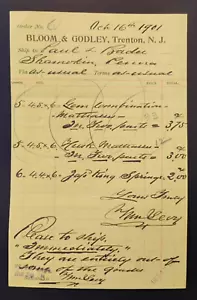 Order No. 6 Oct 16th 1901
BLOOM & GODLEY, Trenton, N. J.
Ship to Paul L
Shamokin, Penna
Via as usual Terms as usual
5-4.5-6- Combination
Mattresses
In Two parts = 3,75
5-4.5-6- Husk Mattresses
In Two parts = 3,00
6-4.6-6- King Springs 2,00
Yours Truly
Wm Levy
Please to ship
Immediately."
They are entirely out of
of the goods
Wm Levy